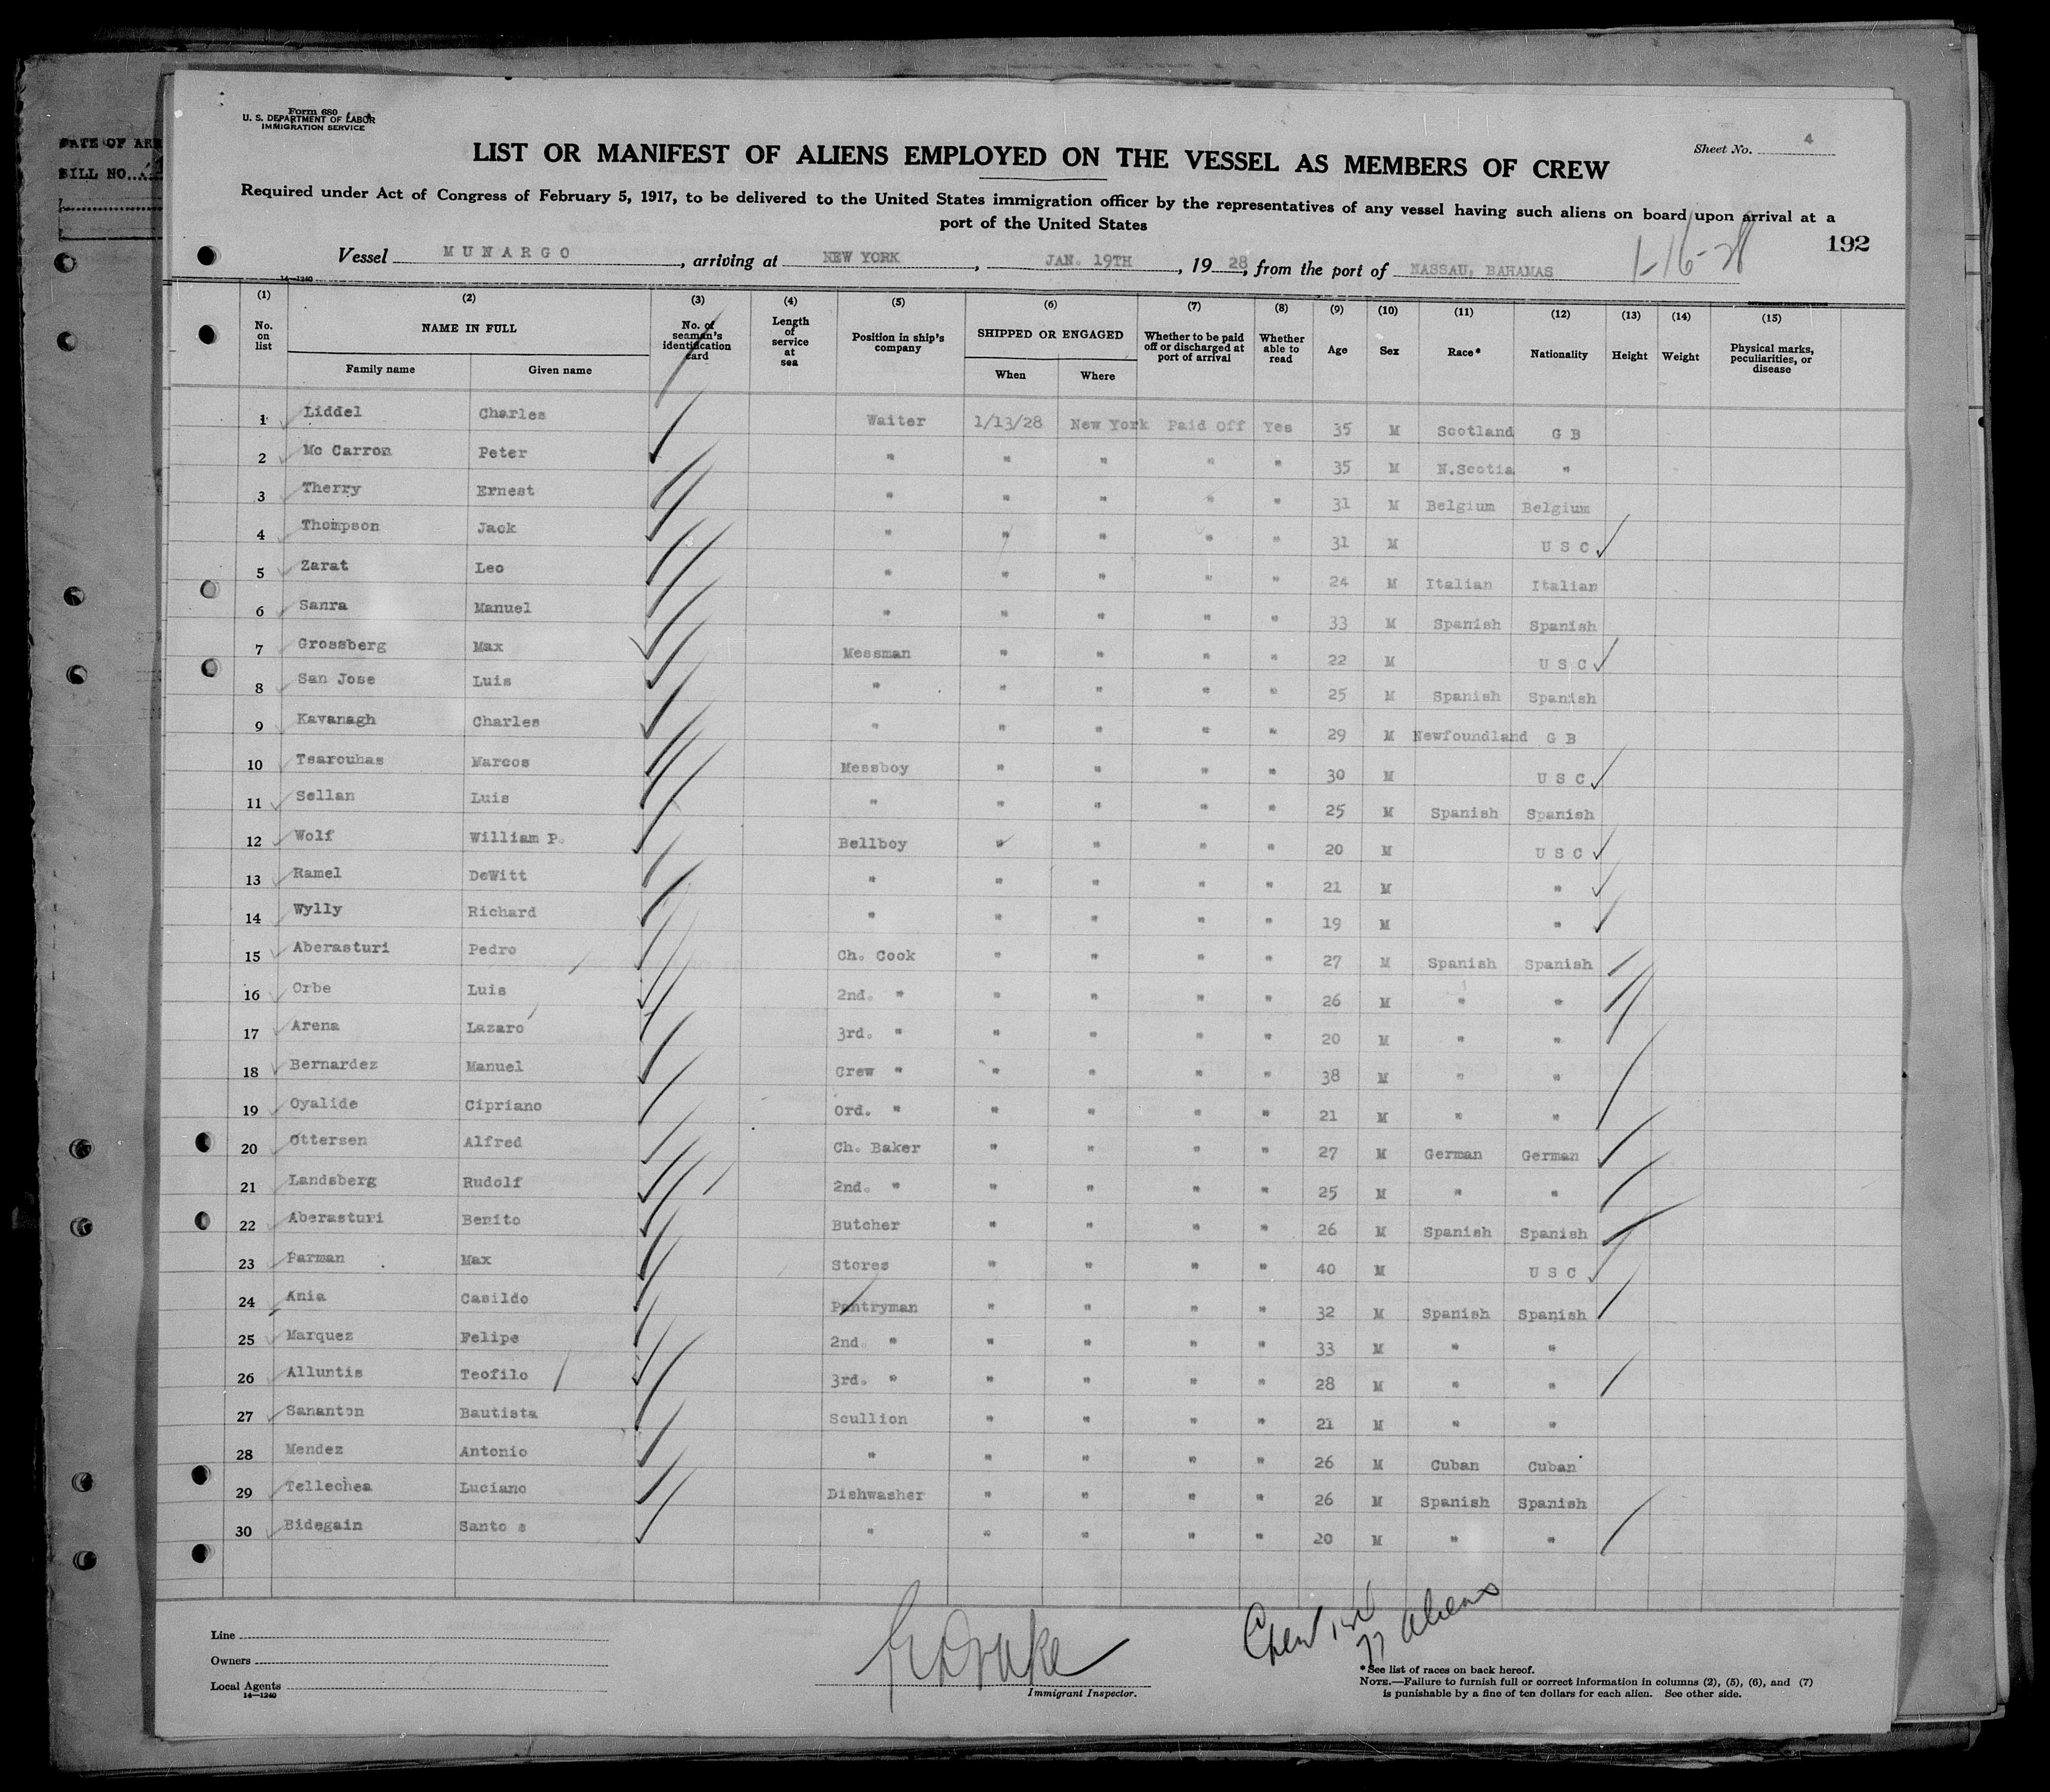 DATE OF ARR
BILL NO.
Form 680
U. S. DEPARTMENT OF LABOR
IMMIGRATION SERVICE
Sheet No. 4
LIST OR MANIFEST OF ALIENS EMPLOYED ON THE VESSEL AS MEMBERS OF CREW
Required under Act of Congress of February 5, 1917, to be delivered to the United States immigration officer by the representatives of any vessel having such aliens on board upon arrival at a
port of the United States
192
Vessel MUNARGO, arriving at NEW YORK, JAN. 19TH, 19 28, from the port of NASSAU, BAHAMAS 1-16-28
14—1240
(1) (2) (3) (4) (5) (6) (7) (8) (9) (10) (11) (12) (13) (14) (15)
No. on list NAME IN FULL No. of seaman's identification card Length of service at sea Position in ship's company SHIPPED OR ENGAGED Whether to be paid off or discharged at port of arrival Whether able to read Age Sex Race* Nationality Height Weight Physical marks, peculiarities, or disease
Family name Given name When Where
1 Liddel Charles Waiter 1/13/28 New York Paid Off Yes 35 M Scotland G B
2 Mc Carron Peter " " " " " 35 M N.Scotia "
3 Therry Ernest " " " " " 31 M Belgium Belgium
4 Thompson Jack " " " " " 31 M U S C
5 Zarat Leo " " " " " 24 M Italian Italian
6 Sanra Manuel " " " " " 33 M Spanish Spanish
7 Grossberg Max Messman " " " " 22 M U S C
8 San Jose Luis " " " " " 25 M Spanish Spanish
9 Kavanagh Charles " " " " " 29 M Newfoundland G B
10 Tsarouhas Marcos Messboy " " " " 30 M U S C
11 Sellan Luis " " " " " 25 M Spanish Spanish
12 Wolf William P. Bellboy " " " " 20 M U S C
13 Ramel DeWitt " " " " " 21 M "
14 Wylly Richard " " " " " 19 M "
15 Aberasturi Pedro Ch. Cook " " " " 27 M Spanish Spanish
16 Orbe Luis 2nd. " " " " " 26 M " "
17 Arena Lazaro 3rd. " " " " " 20 M " "
18 Bernardez Manuel Crew " " " " " 38 M " "
19 Oyalide Cipriano Ord. " " " " " 21 M " "
20 Ottersen Alfred Ch. Baker " " " " 27 M German German
21 Landsberg Rudolf 2nd. " " " " " 25 M " "
22 Aberasturi Benito Butcher " " " " 26 M Spanish Spanish
23 Parman Max Stores " " " " 40 M U S C
24 Ania Casildo Pantryman " " " " 32 M Spanish Spanish
25 Marquez Felipe 2nd. " " " " " 33 M " "
26 Alluntis Teofilo 3rd. " " " " " 28 M " "
27 Sananton Bautista Scullion " " " " 21 M " "
28 Mendez Antonio " " " " " 26 M Cuban Cuban
29 Tellechea Luciano Dishwasher " " " " 26 M Spanish Spanish
30 Bidegain Santo s " " " " " 20 M " "
Line
Owners
Local Agents
14—1240
Drake
Immigrant Inspector.
Crew
77 aliens
*See list of races on back hereof.
NOTE.—Failure to furnish full or correct information in columns (2), (5), (6), and (7)
is punishable by a fine of ten dollars for each alien. See other side.